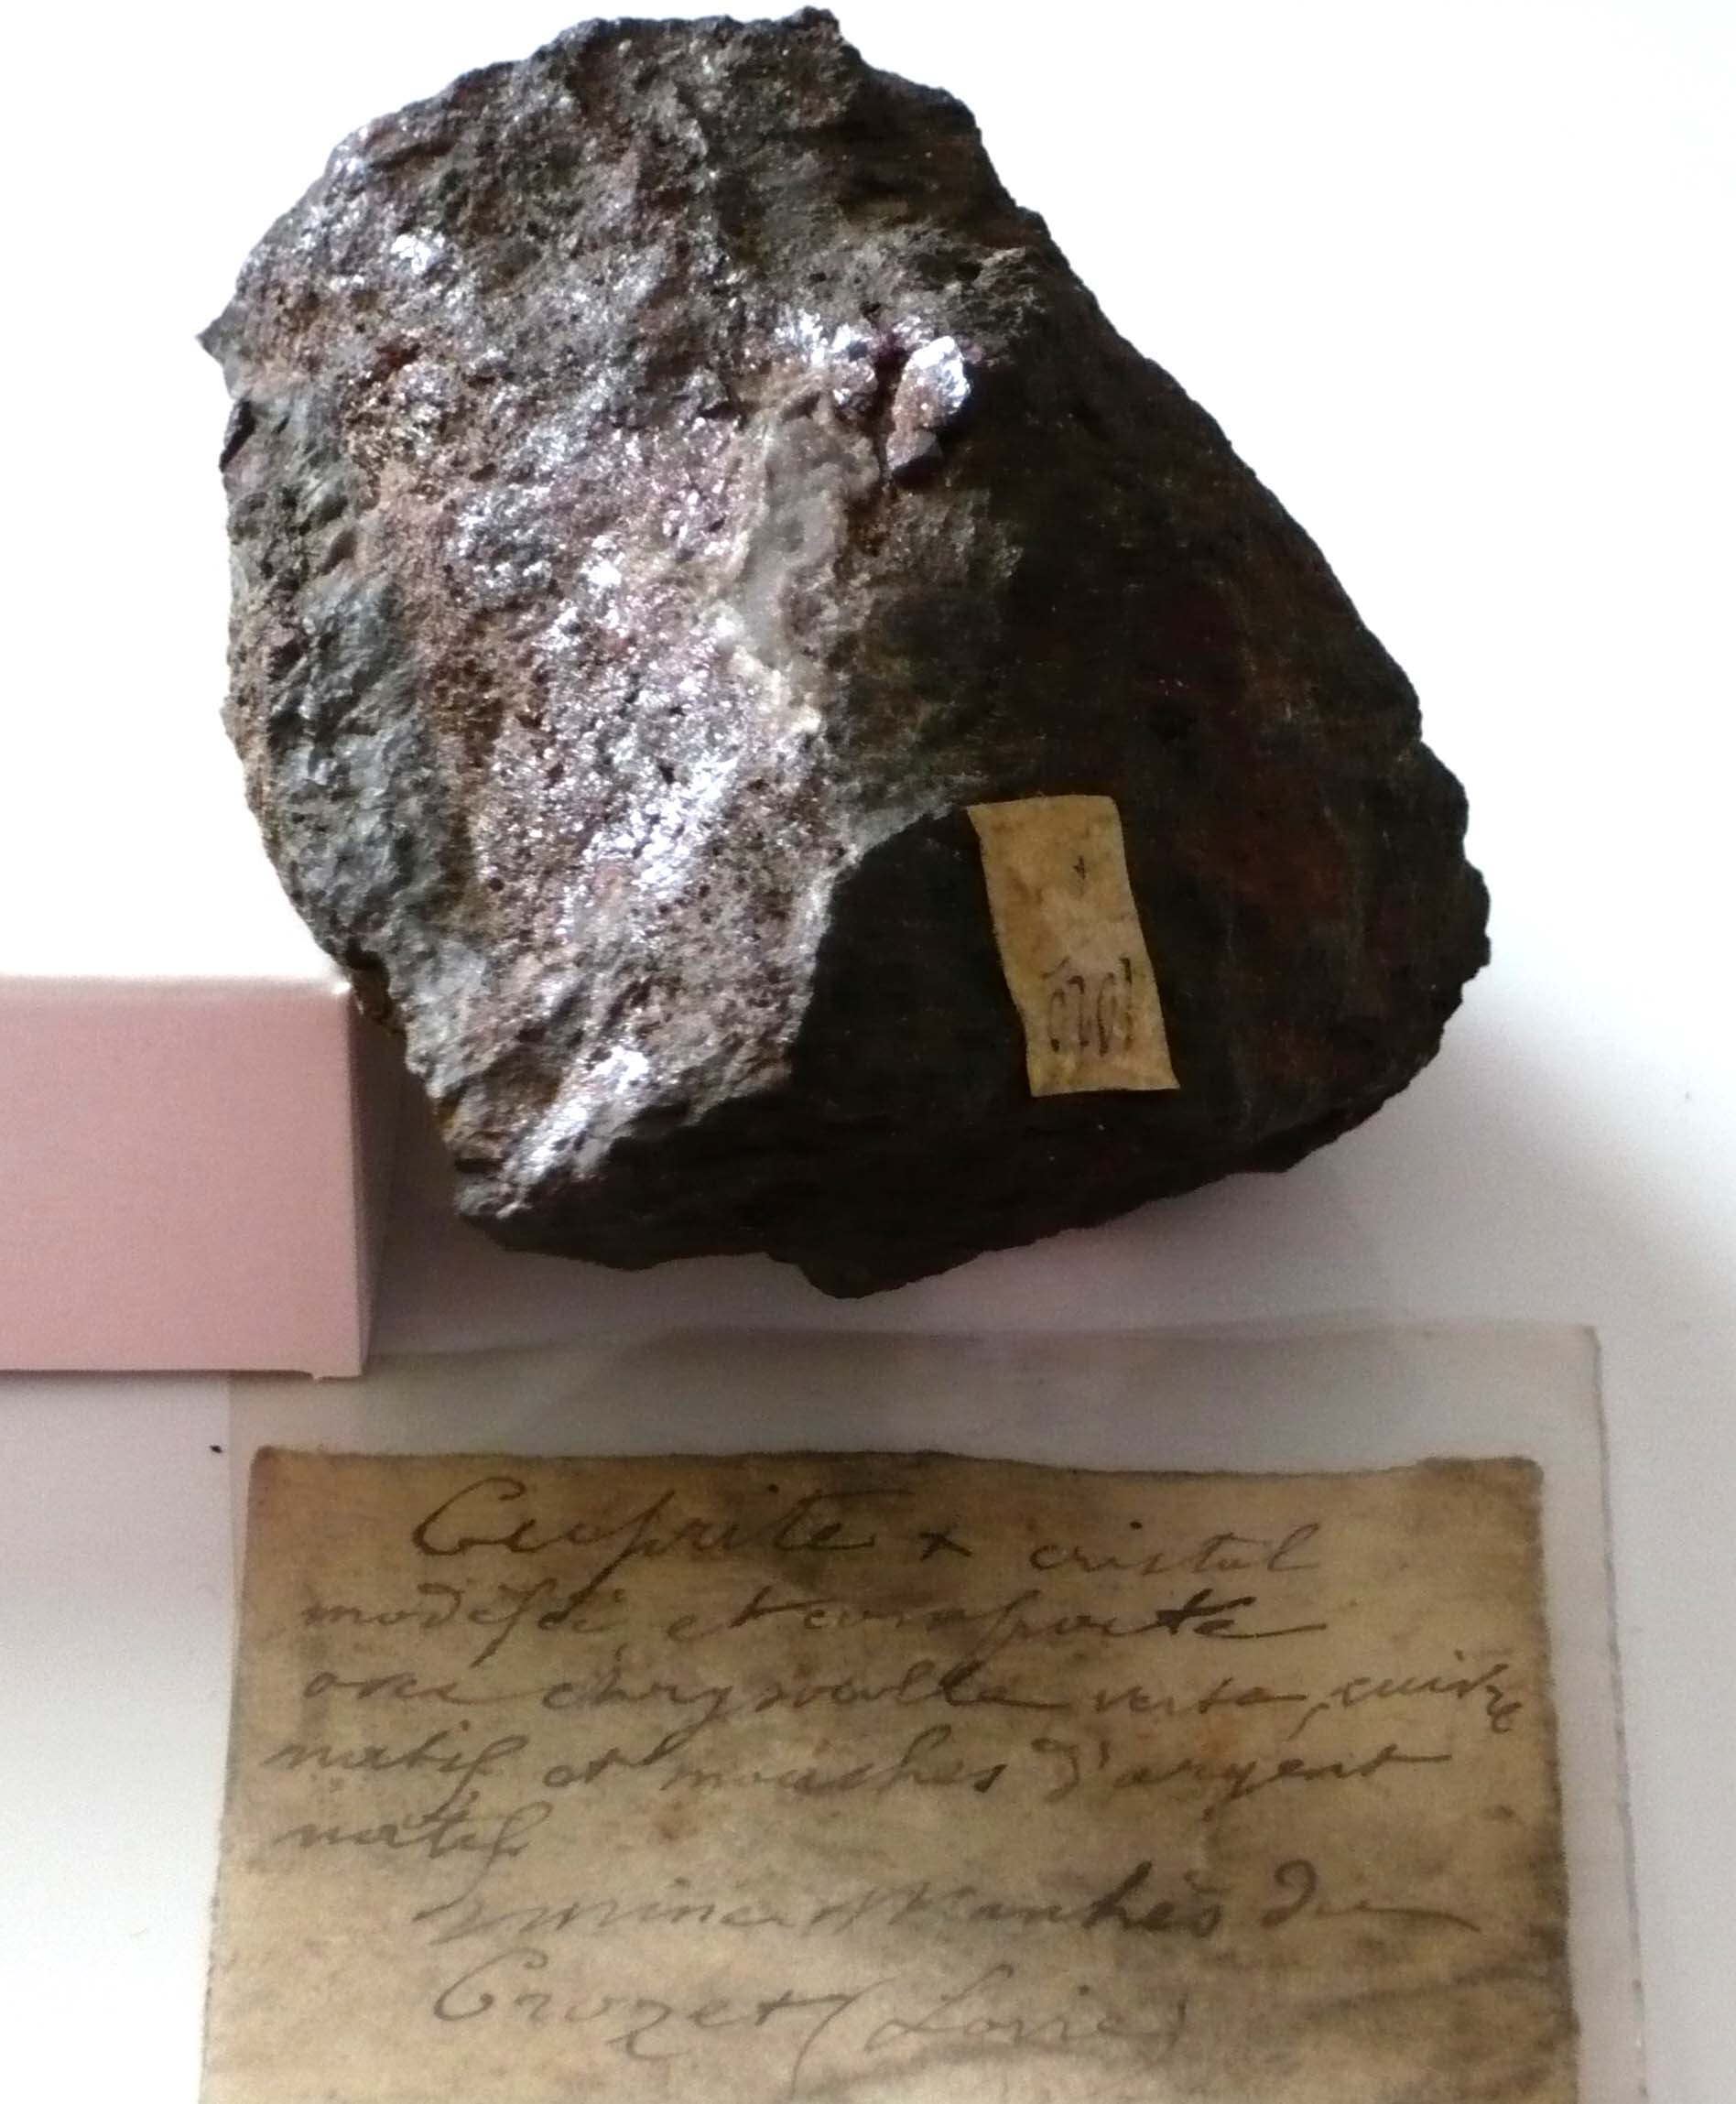 Cuprite x cristal
modifié et comporte
avec chrysocolle verte, cuivre
natif et mouches d'argent
natif
mine
Crozet (Loire)